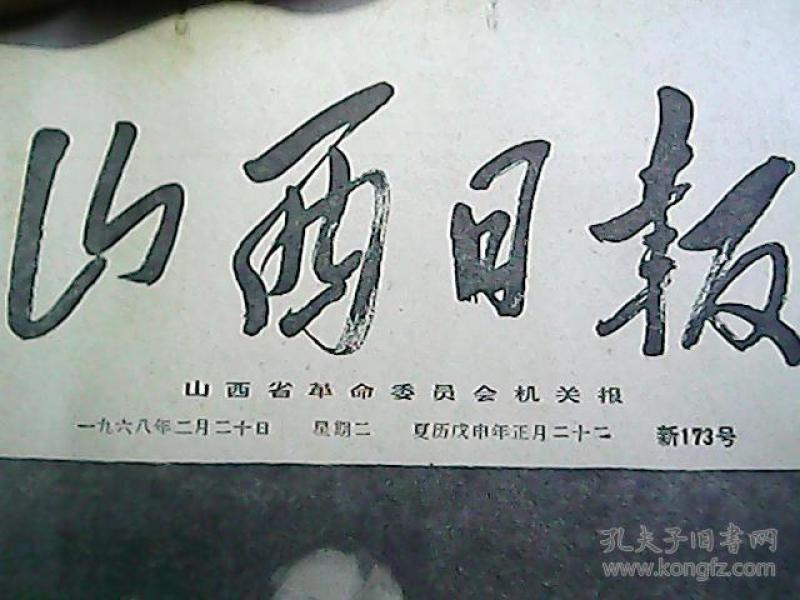 山西日报
山西省革命委员会机关报
一九六八年二月二十日 星期二 夏历戊申年正月二十二 新173号
孔夫子旧书网
www.kongfz.com